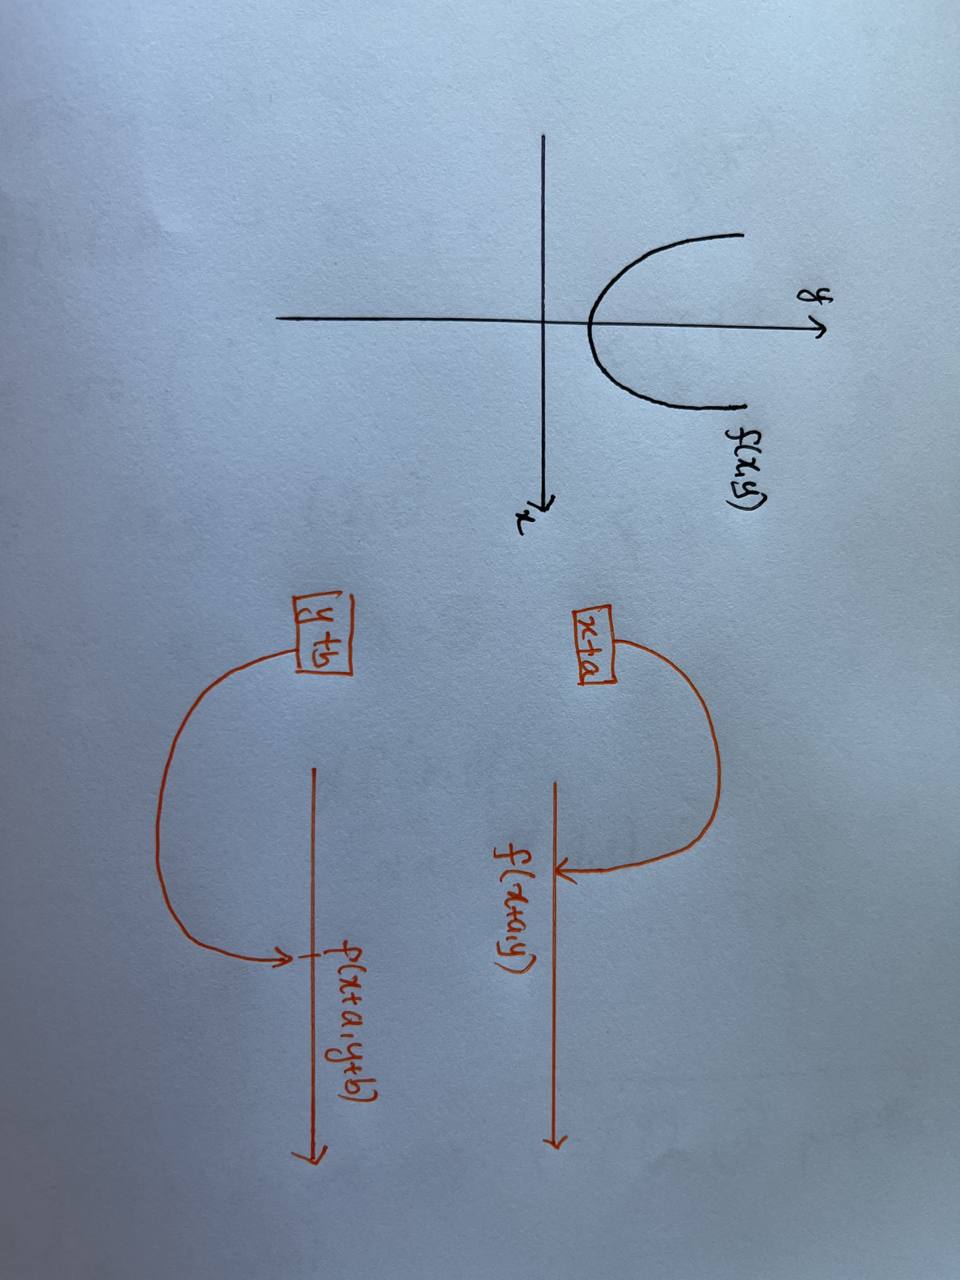 y
f(x,y)
x
x+a
f(x+a,y)
y+b
f(x+a,y+b)